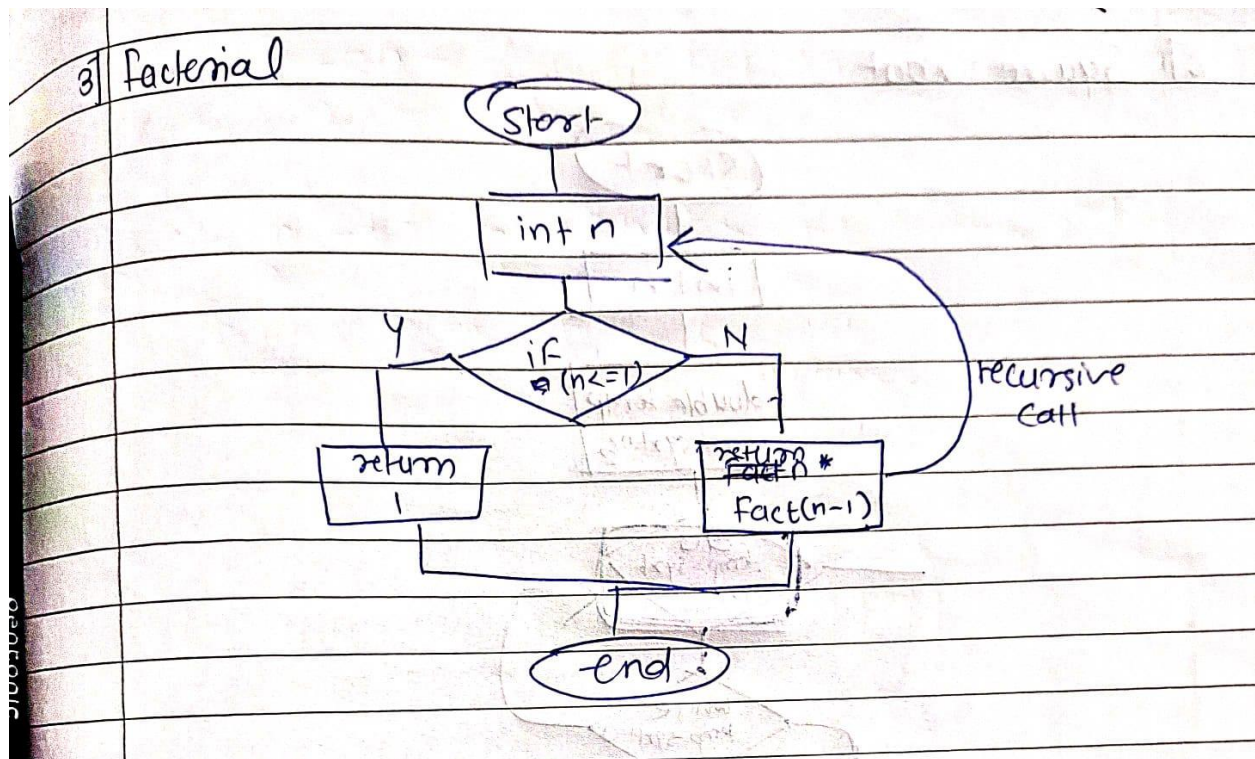 3] Factorial
Start
int n
Y
N
if
(n<=1)
recursive
Call
return
1
return
n *
Fact(n-1)
end